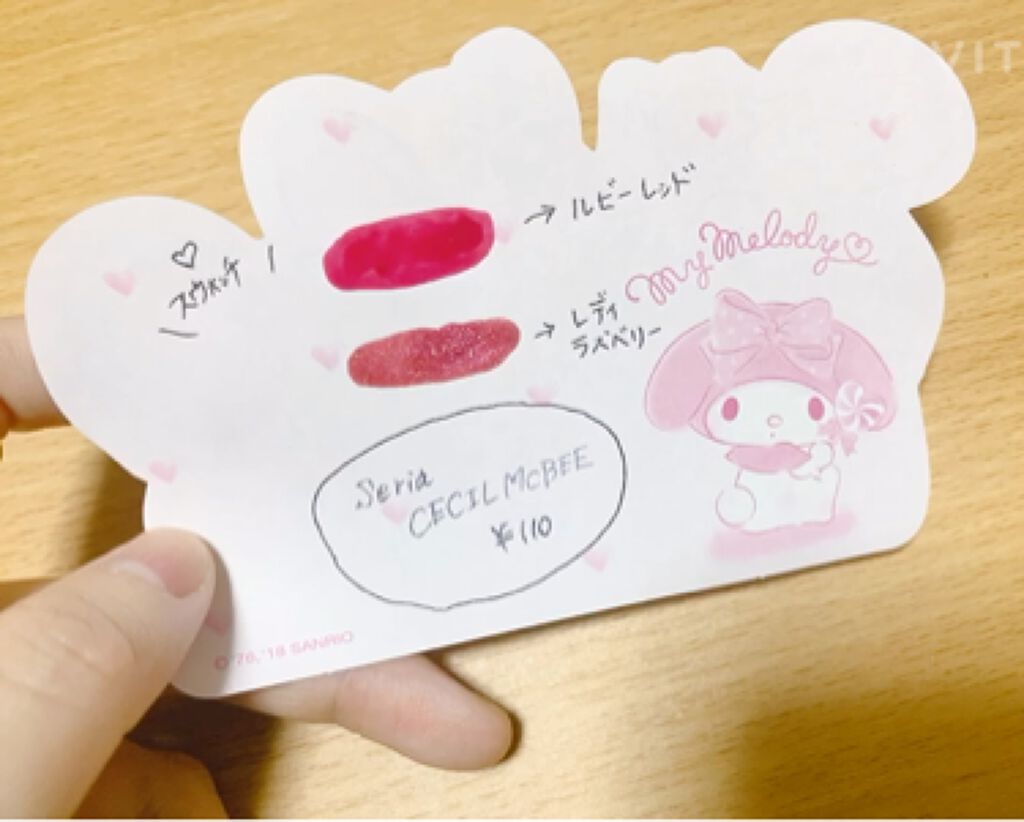 スウォッチ
→ルビーレッド
My Melody
→レディ
ラベベリー
Seria
CECIL McBEE
¥110
© '76,'18 SANRIO
VIT